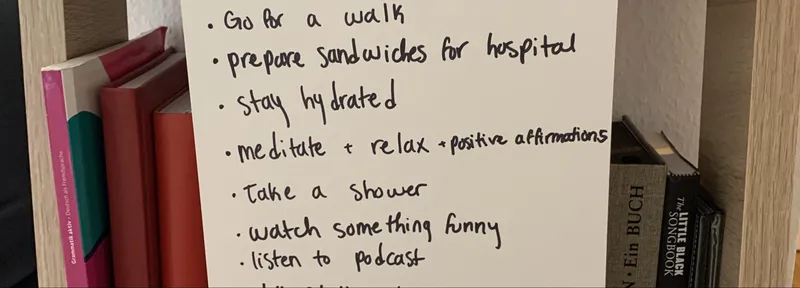 • Go for a walk
• prepare sandwiches for hospital
• stay hydrated
• meditate + relax + positive affirmations
• Take a shower
• watch something funny
• listen to podcast
Grammatik aktiv • Deutsch als Fremdsprache
• Ein BUCH
The LITTLE BLACK
SONGBOOK